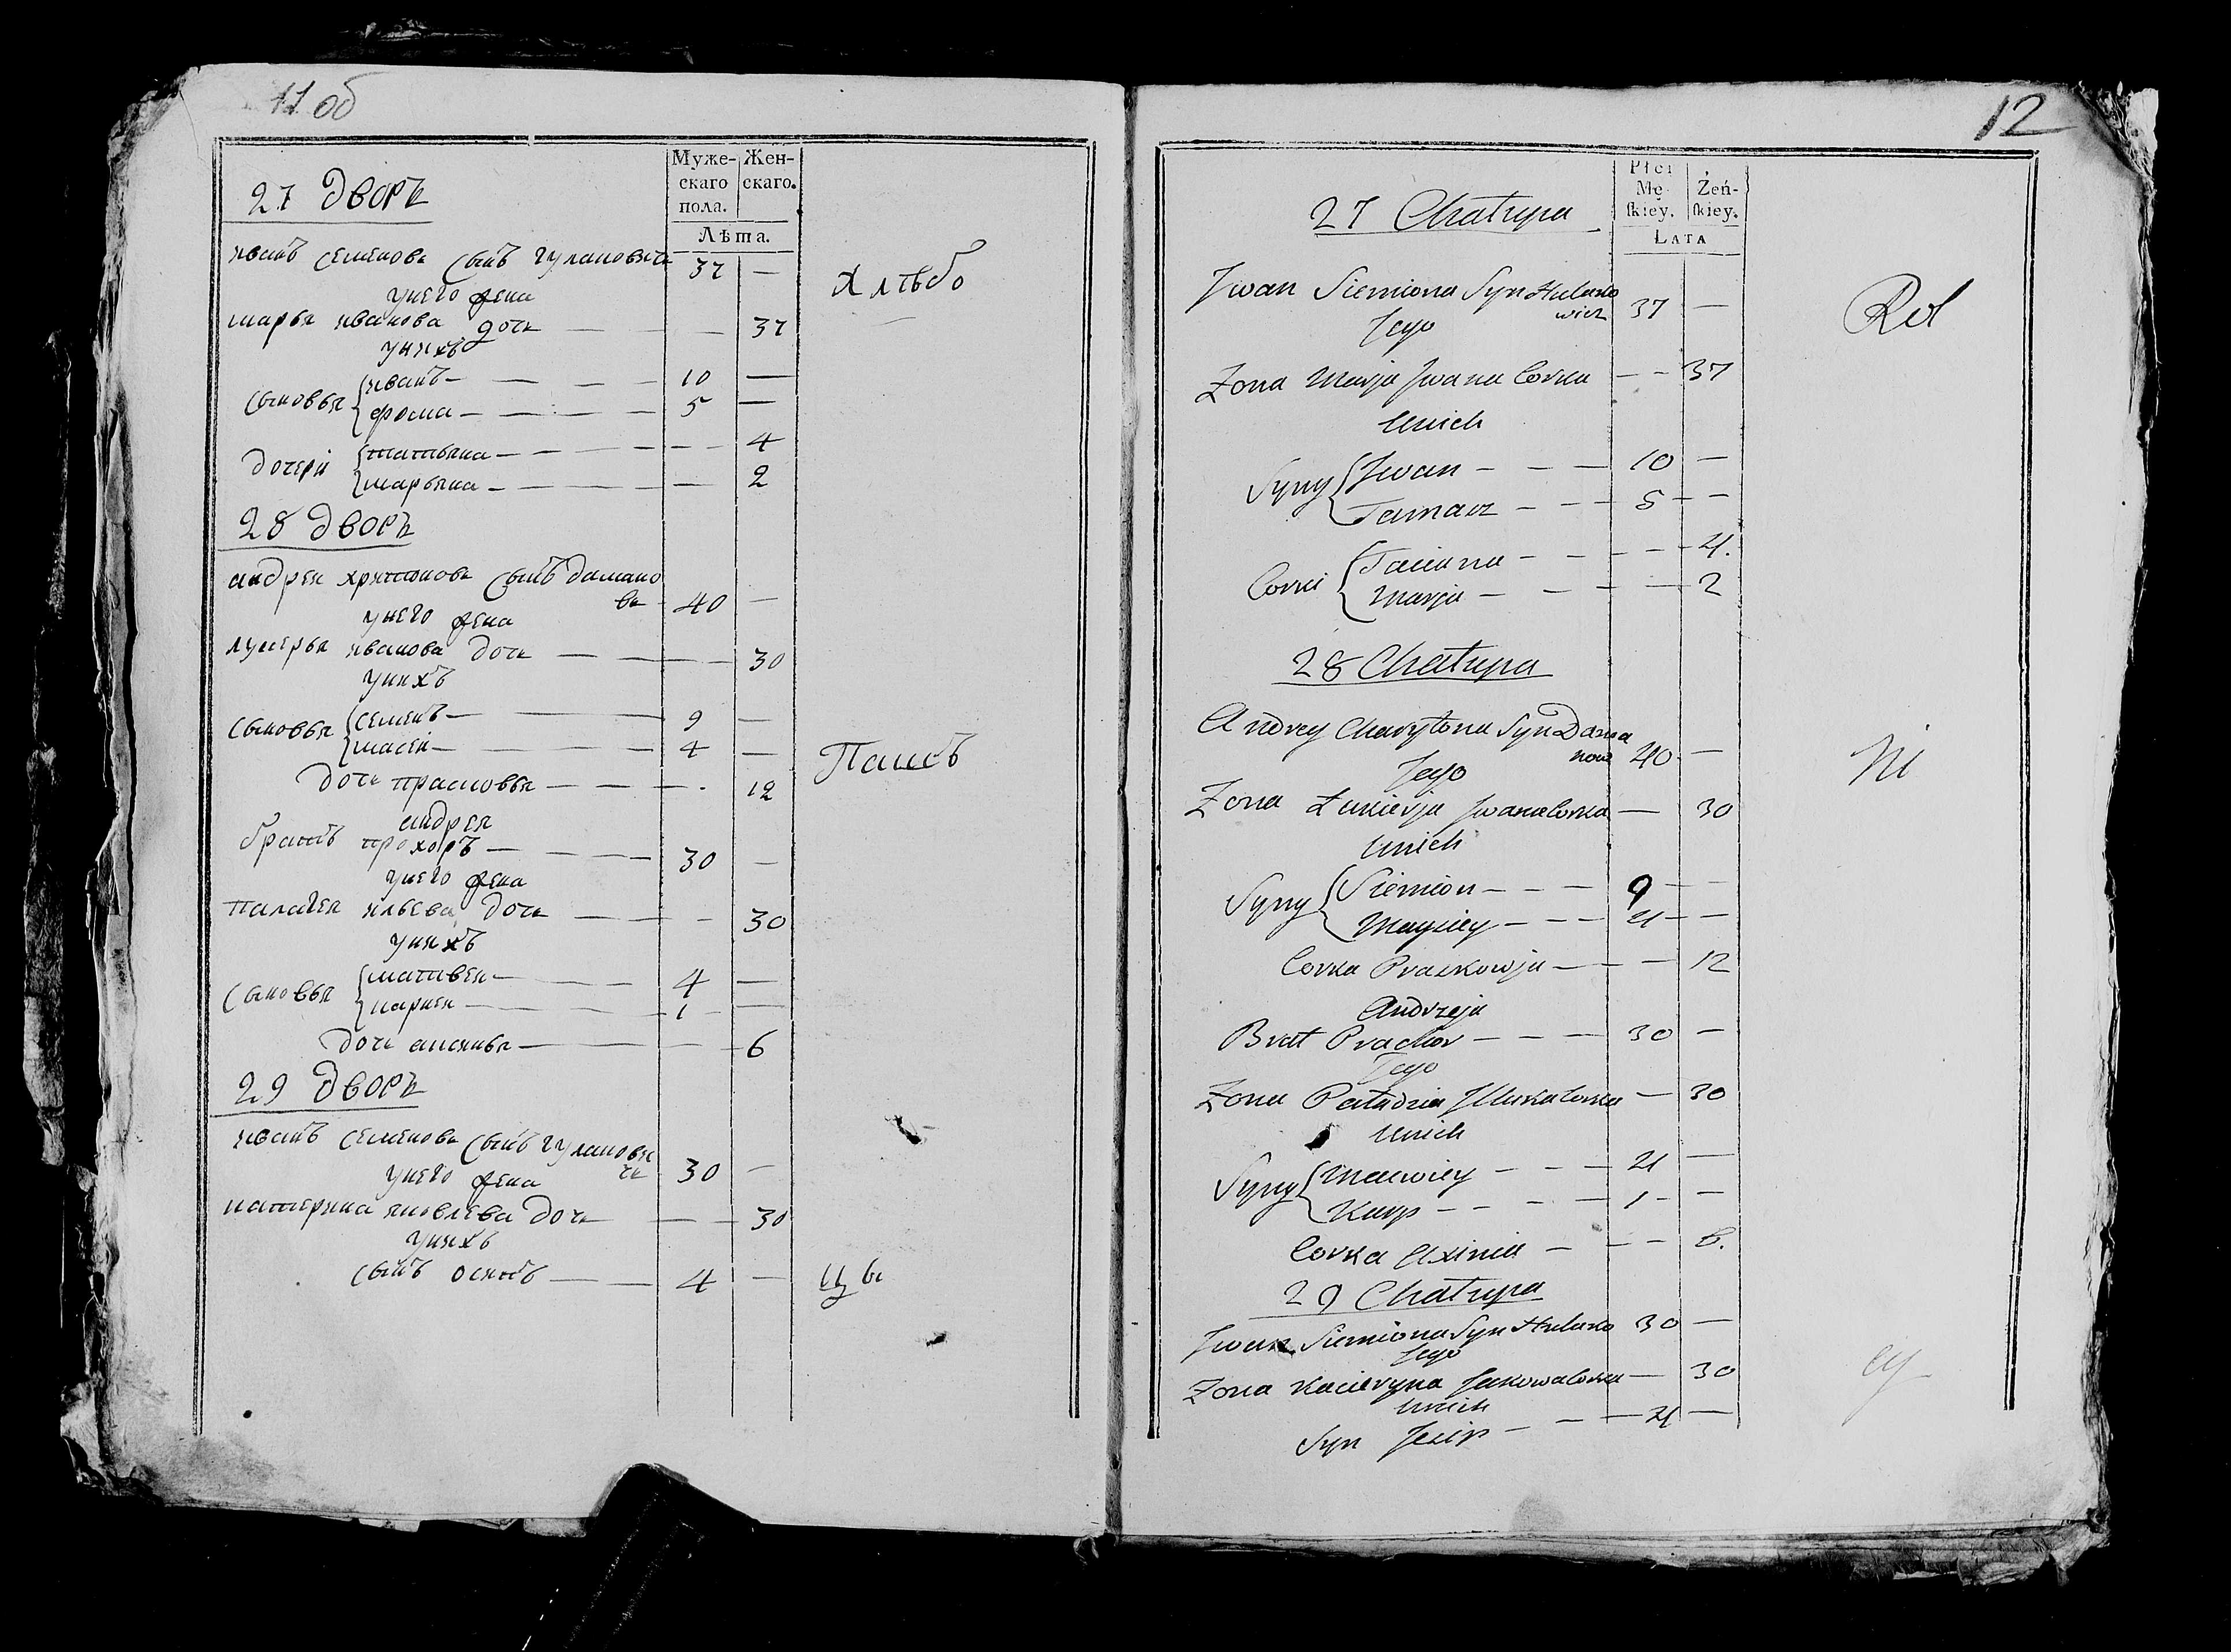 11 об
Муже-
скаго
пола.
Жен-
скаго.
Лѣта.
27 дворъ
иванъ семеновъ сынъ гулановичъ 37 —
Хлѣбо
у него жена
марья иванова дочь — — — 37
у нихъ
сыновья { иванъ — — — — 10 —
фома — — — — 5 —
дочери { татьяна — — — — — 4
марьяна — — — — 2
28 дворъ
андрей хритоновъ сынъ дамано
въ 40 —
у него жена
лукерья иванова дочь — — — — 30
у нихъ
сыновья { семенъ — — — 9 —
масей — — — 4 —
Пашъ
дочь прасковья — — — — 12
андрея
братъ прохоръ — — — — 30 —
у него жена
палагея ильева дочь — — — 30
у нихъ
сыновья { матвей — — — 4 —
карпей — — — 1 —
дочь аксинья — — — — 6
29 дворъ
иванъ семеновъ сынъ гуланови
чъ 30 —
у него жена
катерина яковлева дочь — — — 30
у нихъ
сынъ осипъ — — 4 —
цы
12
Płci
Mę-
ſkiey.
Żeń-
ſkiey.
Lata
27 Chałupa
Jwan Siemiona Syn Hulano
wicz 37 —
Rol
Jego
Zona Marja Jwana Corka — — 37
Unich
Syny { Jwan — — — 10 —
Tamasz — — — 5 — —
Corki { Taciana — — — — 4.
Marja — — — — 2
28 Chałupa
Andrey Charytona Syn Dama
now 40 —
ni
Jego
Zona Łukierja Jwana Corka — 30
Unich
Syny { Siemion — — — 9 — —
Maysiey — — — 4 — —
Corka Praskowja — — — 12
Andrzeja
Brat Prachor — — — 30 —
Jego
Zona Paładzia Jlluka Corka — 30
Unich
Syny { Maćwiey — — — 4 —
Karp — — — — 1 — —
Corka Axinia — — — 6.
29 Chałupa
Jwan Siemiona Syn Hulano 30 —
Jego
Zona Kacieryna Jakowa Corka — 30
cy
Unich
Syn Jesip — — — 4 —